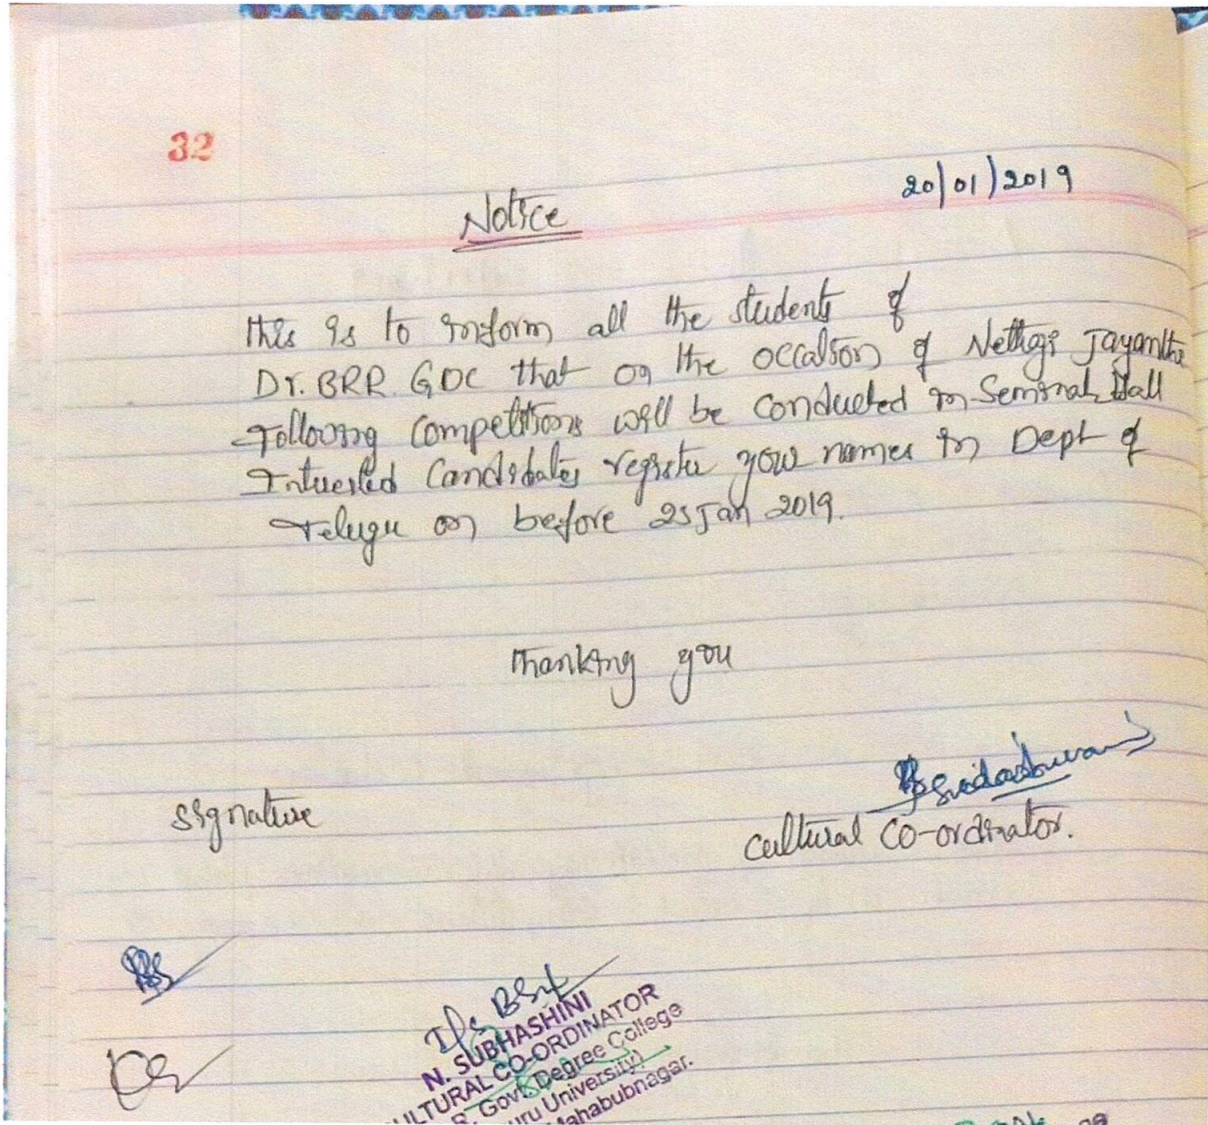 32
20/01/2019
Notice
This is to inform all the students of
Dr. BRR. GDC that on the occaison of Nethaji Jayanthi
Following Competitions will be conducted in Seminar Hall
Interested Candidates register your names in Dept of
Telugu on before 25 Jan 2019.
Thanking you
Signature
Cultural Co-ordinator.
N. SUBHASHINI
ULTURAL CO-ORDINATOR
R. Govt. Degree College
uru University)
ahabubnagar.